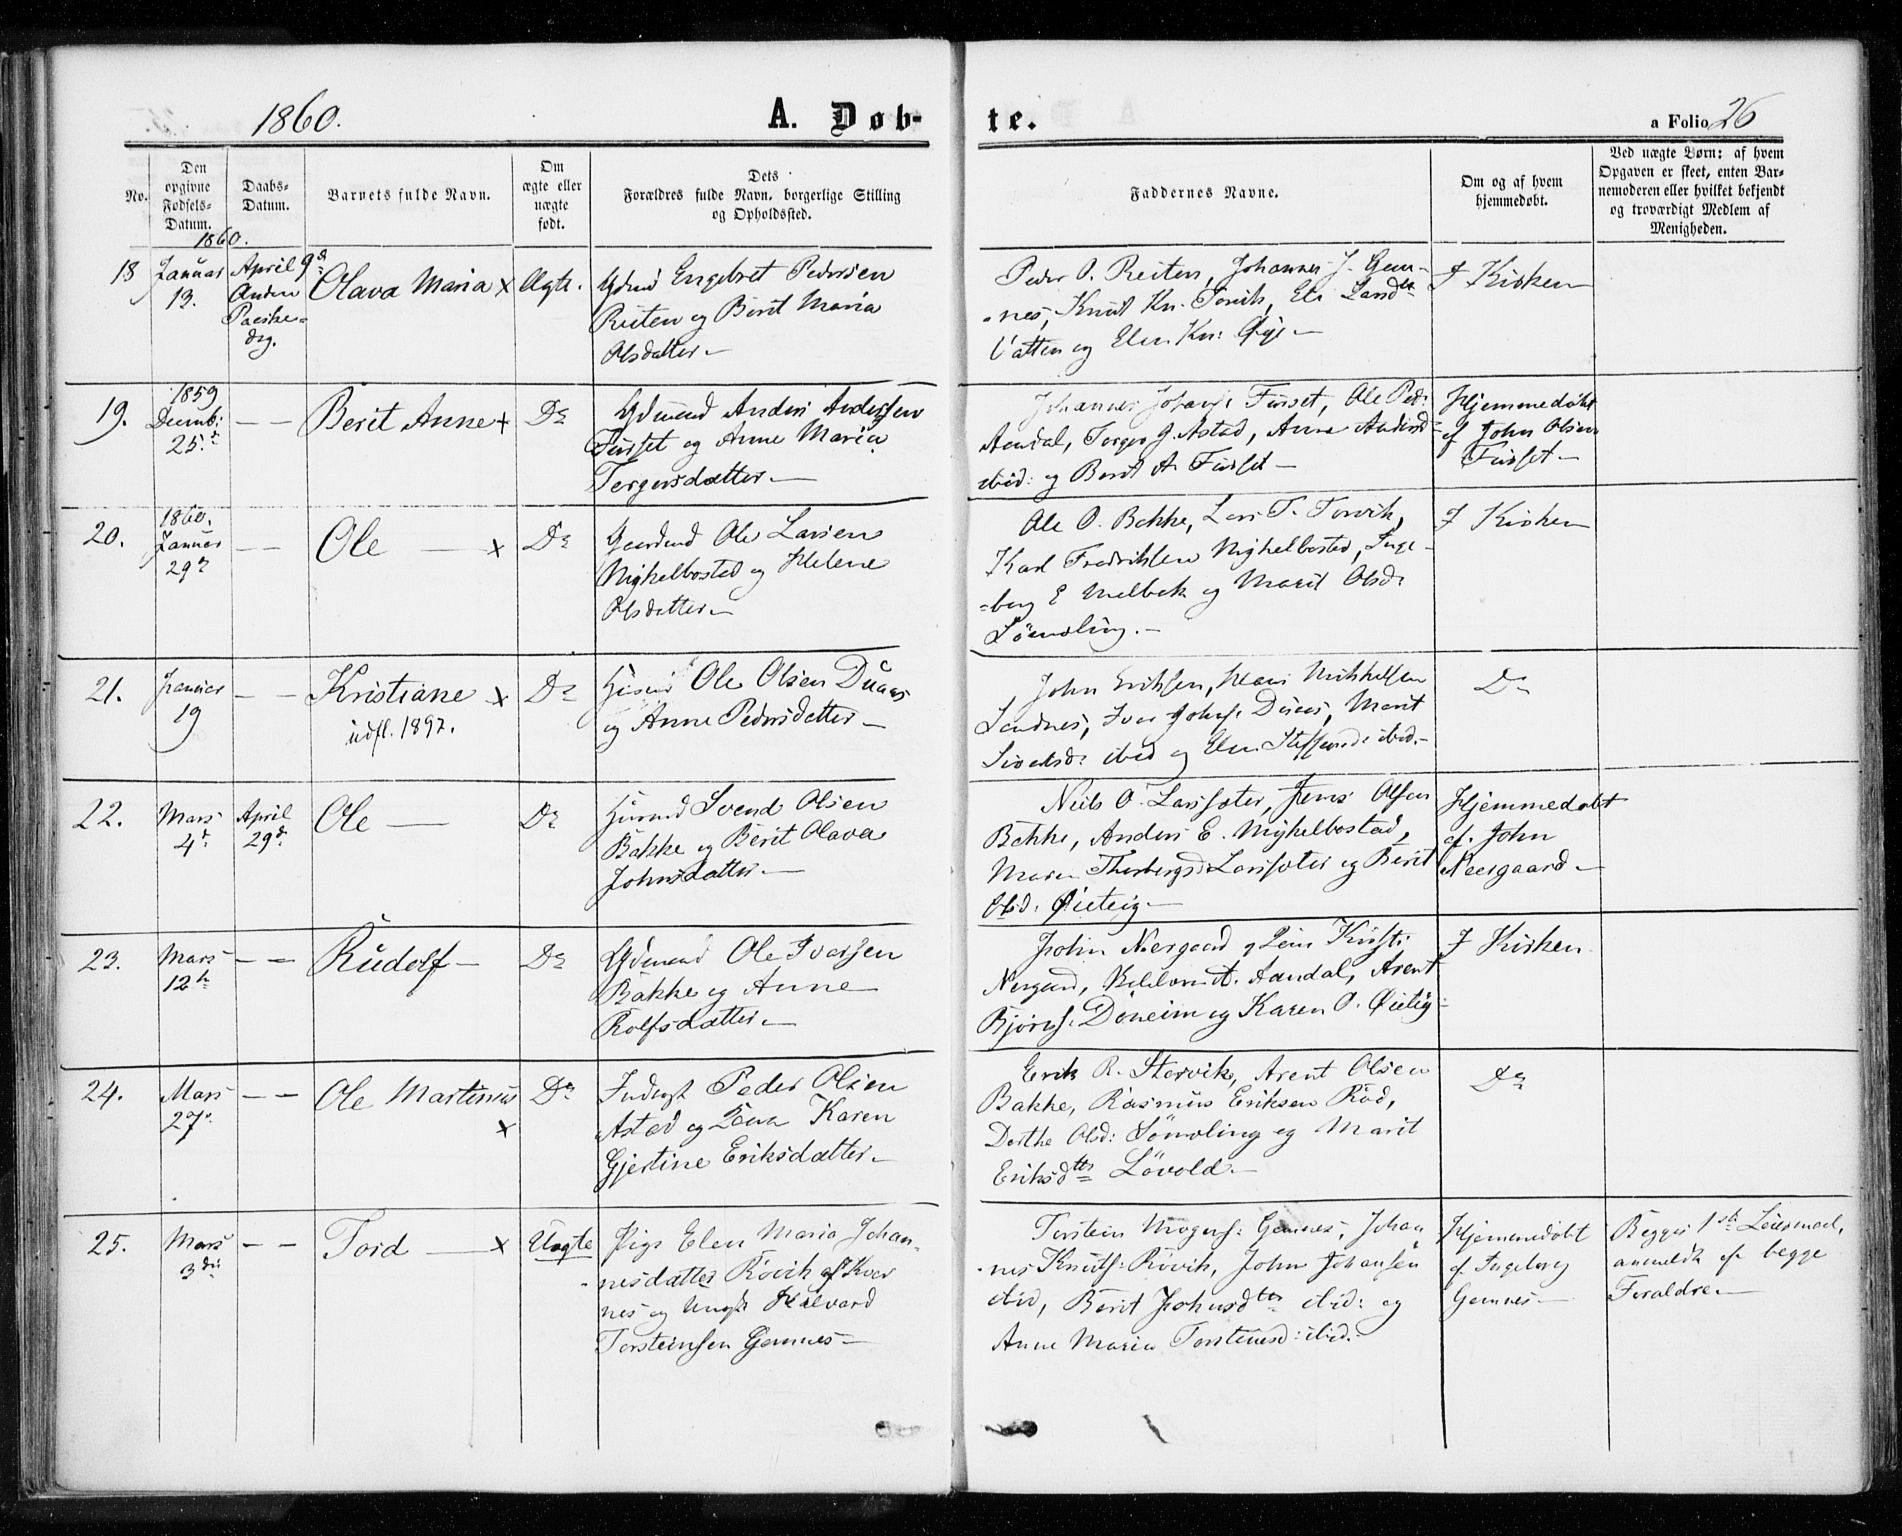 1860.
A. Døb-
te.
a Folio 26
No.
Den opgivne Fødsels-Datum.
Daabs-Datum.
Barnets fulde Navn.
Om ægte eller uægte født.
Dets Forældres fulde Navn, borgerlige Stilling og Opholdssted.
Faddernes Navne.
Om og af hvem hjemmedøbt.
Ved uægte Børn: af hvem Opgaven er skeet, enten Barnemoderen eller hvilket bekjendt og troværdigt Medlem af Menigheden.
1860.
18
Januar 13.
April 9d Anden Paaskedag.
Olava Maria x
Ægte.
Engebret Pedersen
Reiten og Berit Maria
Olsdatter
Peder O. Reiten, Johannes J. Gem-
nes, Knut Kn. Torvik,
Vatten og Elen Kn: Øye
I Kirken
19.
1859 Decemb: 25.d
Berit Anne x
Do
Gdmand Anders Andersen
Furset og Anne Maria
Tergersdatter
Johannes Johans: Furset, Ole Ped:
Aandal, Torger J. Astad, Anne Andersd:
ibid: og Berit A. Furset
Hjemmedøbt
af John Olsen
Furset
20.
1860. Januar 29d
Ole x
Do
Gaardmd Ole Larsen
Mykelbostad og Helene
Olsdatter
Ole O. Bakke, Lars T. Torvik,
Karl Fredriksen Myhelbostad, Inge-
borg E Melbek og Marit Olsd:
Sömdling.
I Kirken
21.
Januar 19
Kristiane x
udfl. 1892.
Do
Husmd Ole Olsen Duaas
og Anne Pedersdatter
John Eriksen, Hans Mikkelsen
Sandnes, Iver Johs: Duaas, Marit
Sivertsd: ibid og Elen Steffensd: ibid.
Do
22.
Mars 4d
April 29d
Ole
Do
Husmd Svend Olsen
Bakke og Berit Olava
Johnsdatter
Niels O. Larssæter, Jens Olsen
Bakke, Anders E. Myhelbostad,
Maren Thorbergsd: Larssæter og Berit
Olsd: Øieteig
Hjemmedøbt
af John
Neergaard
23.
Mars 12te
Rudolf
Do
Gdmand Ole Iversen
Bakke og Anne
Rolfsdatter
John Neergaard, Kristi
Nergaard, A. Aandal, Arent
Bjørns: Döneim og Karen O. Øieteig
I Kirken
24.
Mars 27d
Ole Martinus x
Do
Inderst Peder Olsen
Astad og Karen
Gjertine Eriksdatter
Erik R. Storvik, Arent Olsen
Bakke, Rasmus Eriksen Röd,
Dorthe Olsd: Sömdling og Marit
Eriksdtr Lövold
Do
25.
Mars 3die
Tord x
Uægte
Pige Elen Maria Johan-
nesdatter Rövik af Kver
nes og Ungk Halvard
Torsteinsen Gemnes
Torstein Mogens: Gemnes, Johan
nes Knuts: Rövik, John Johansen
ibid, Berit Johnsdtr ibid: og
Anne Maria Torsteinsd: ibid.
Hjemmedøbt
af Ingeborg
Gemnes
Begges 1ste Leiermaal,
anmeldt af begge
Forældre